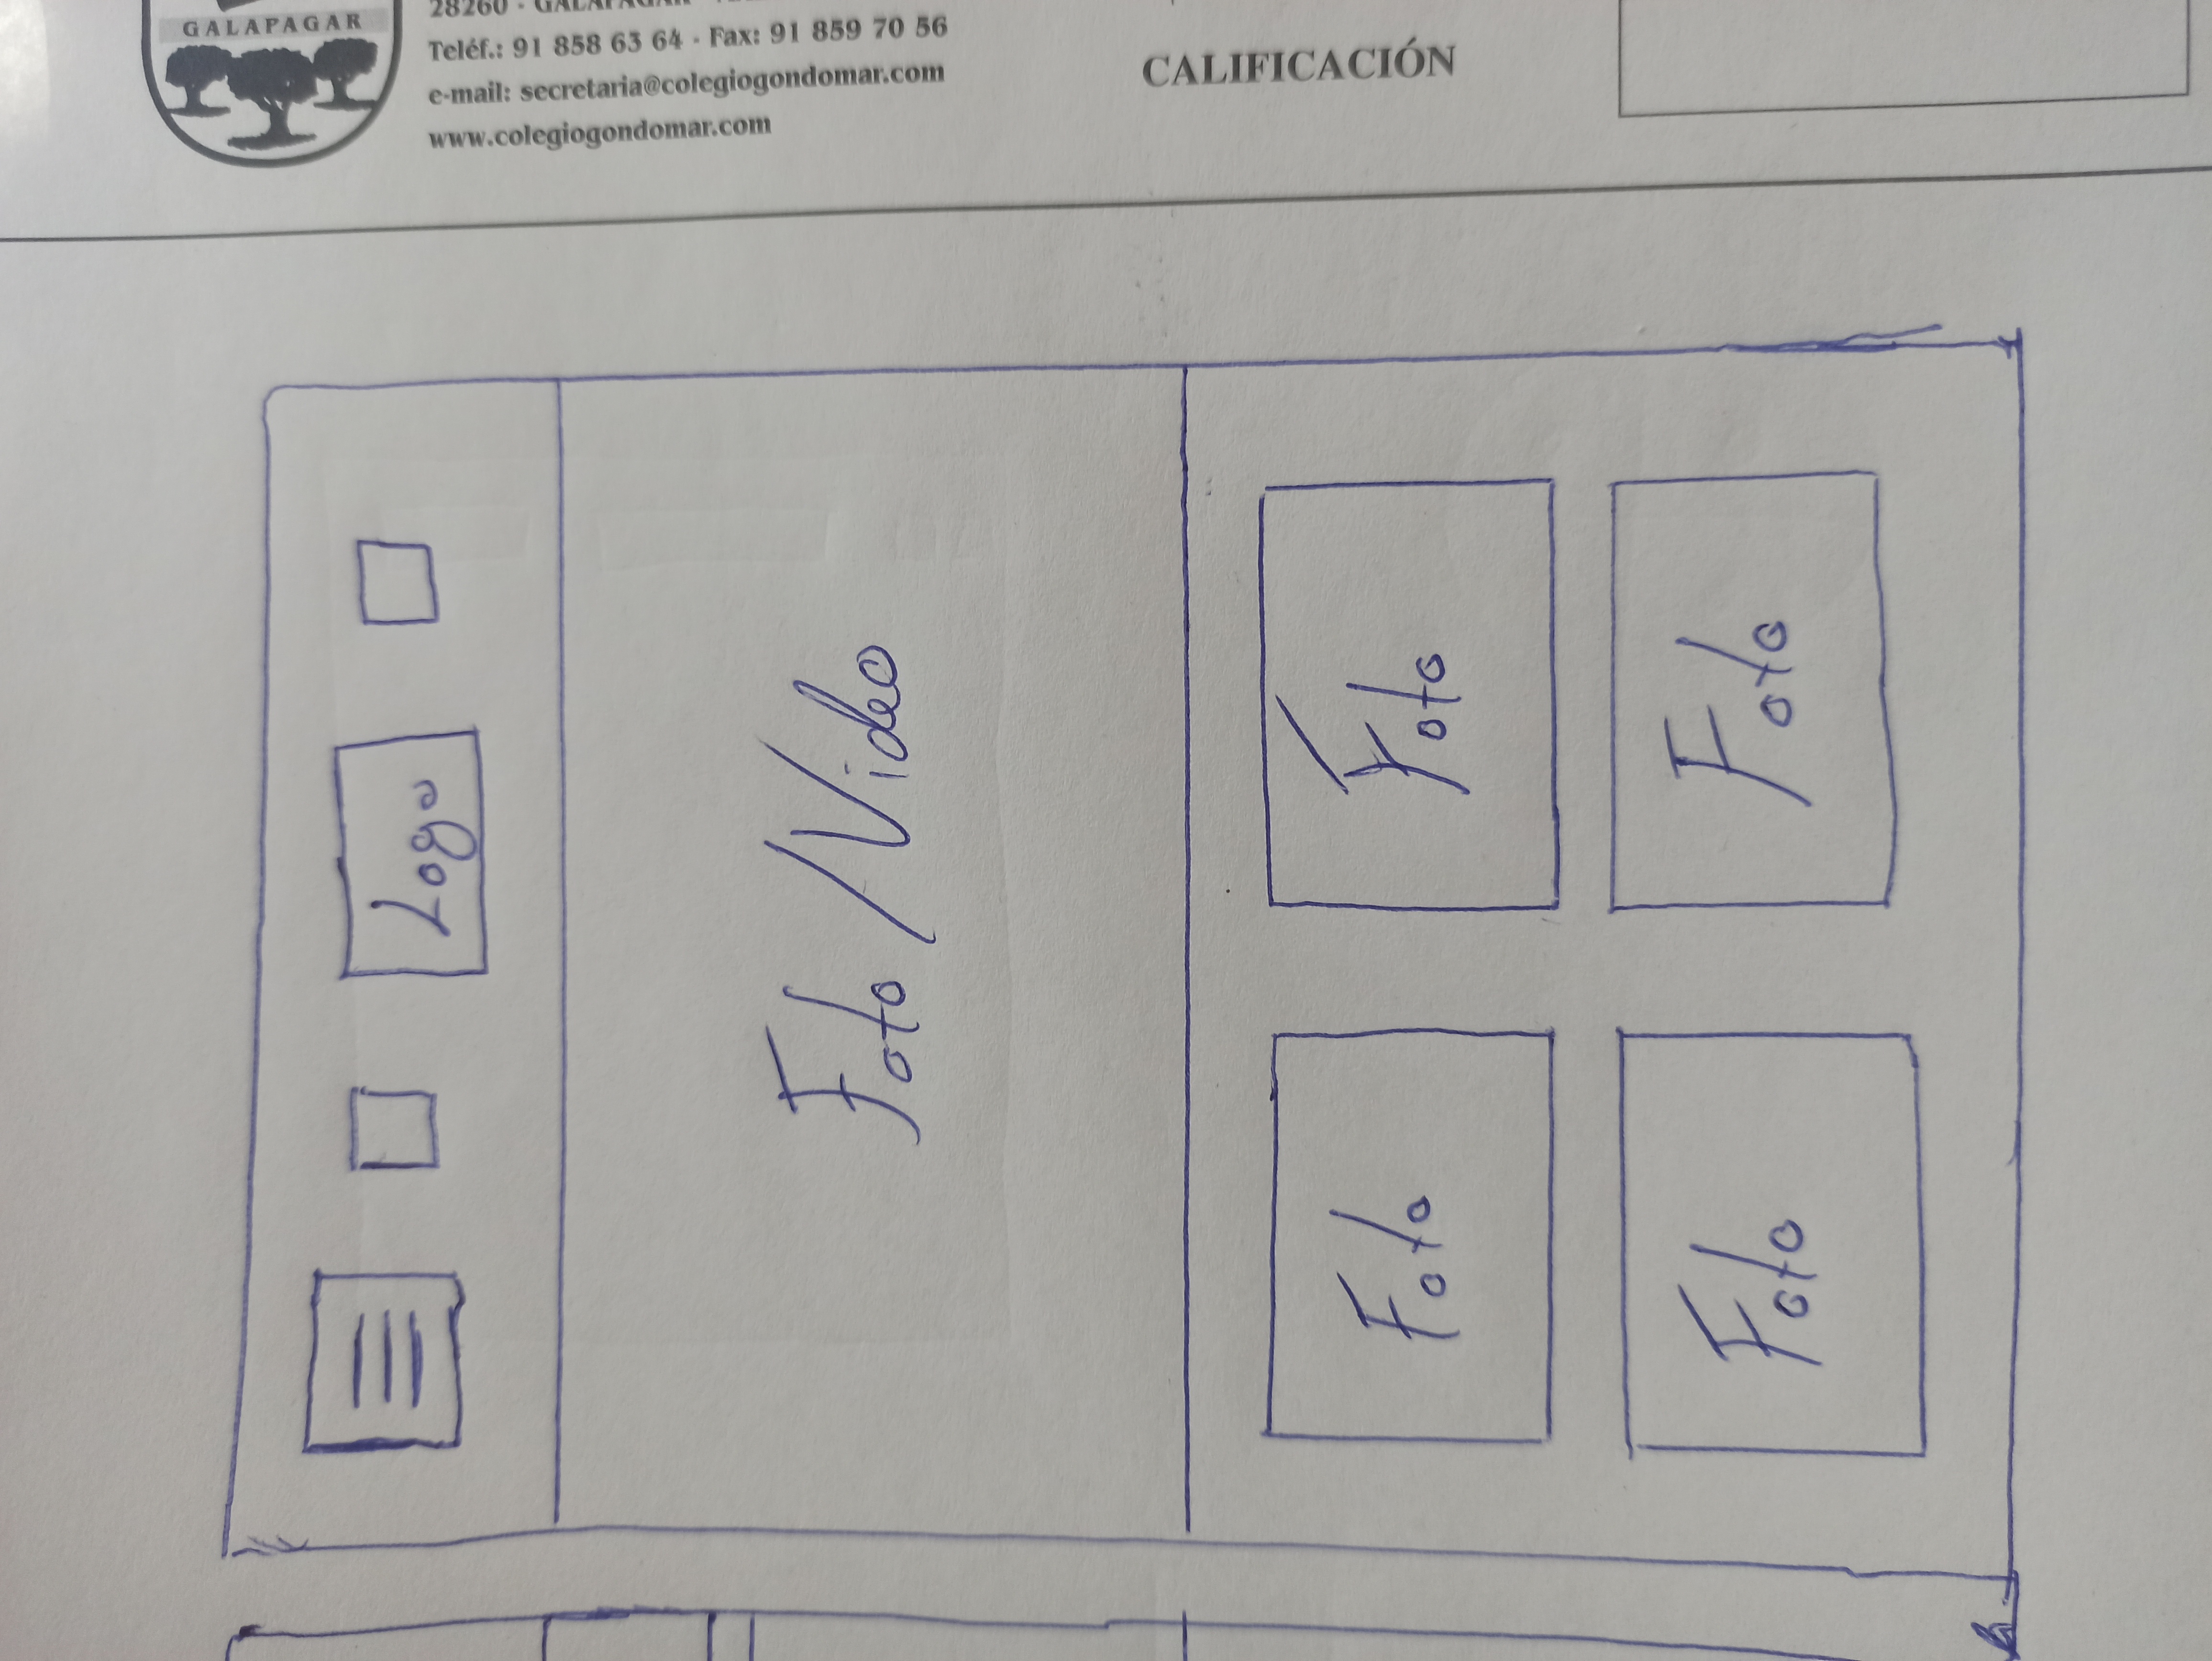 Logo
Foto/Video
Foto
Foto
Foto
Foto
GALAPAGAR
Teléf.: 91 858 63 64 - Fax: 91 859 70 56
e-mail: secretaria@colegiogondomar.com
www.colegiogondomar.com
CALIFICACIÓN